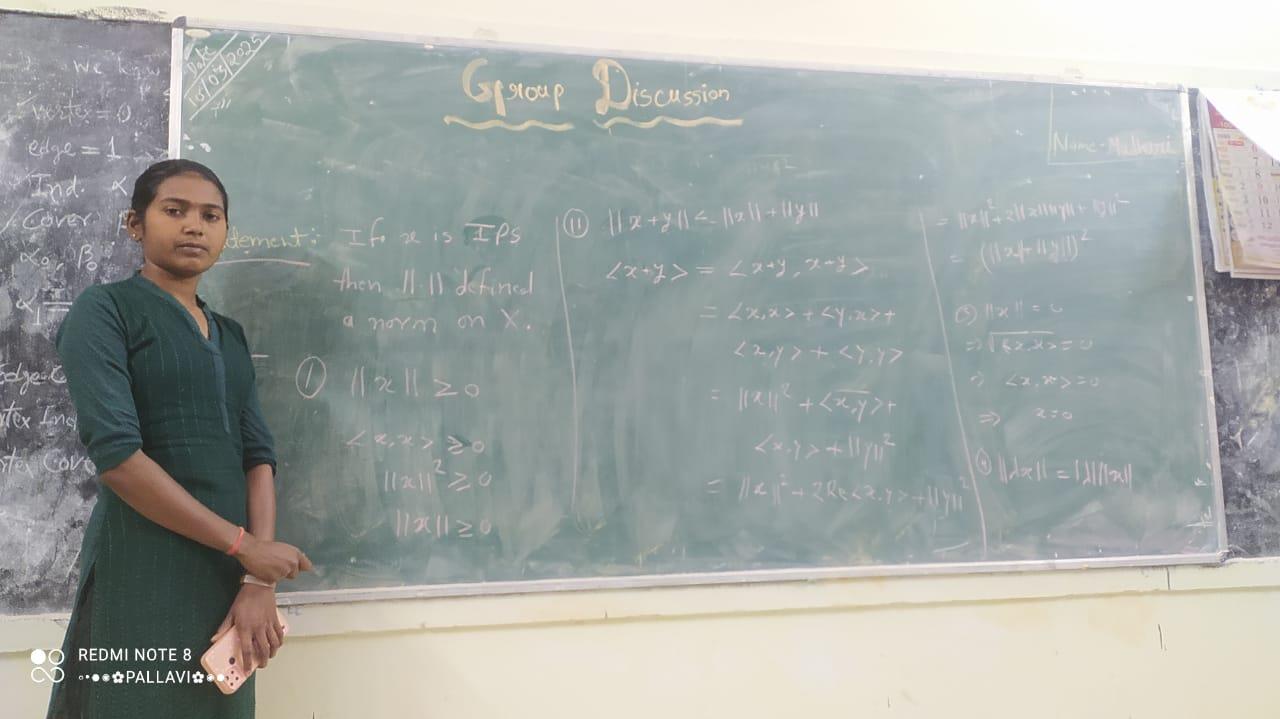 we know
vertex = 0
edge = 1
Ind. α
Cover
α₀, β₀
Edge
Cove
Date
16/03/2025
Group Discussion
Name-
tement: If x is IPS
then ||·|| defined
a norm on X.
① ||x|| ≥ 0
<x,x> ≥ 0
||x||² ≥ 0
||x|| ≥ 0
⑪ ||x+y|| ≤ ||x|| + ||y||
<x+y> = <x+y, x+y>
= <x,x> + <y,x> +
<x,y> + <y,y>
= ||x||² + <x,y> +
<x,y> + ||y||²
= ||x||² + 2Re<x,y> + ||y||²
= ||x||² + 2||x||||y|| + ||y||²
= (||x||+||y||)²
||x|| = 0
⇒ √<x,x> = 0
⇒ <x,x> = 0
⇒ x=0
||λx|| = |λ|||x||
REDMI NOTE 8
PALLAVI